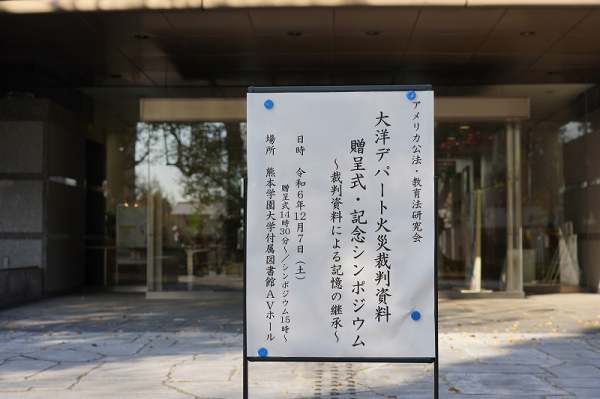 アメリカ公法・教育法研究会
大洋デパート火災裁判資料
贈呈式・記念シンポジウム
～裁判資料による記憶の継承～
日時　令和6年12月7日（土）
贈呈式14時30分～／シンポジウム15時～
場所　熊本学園大学付属図書館AVホール